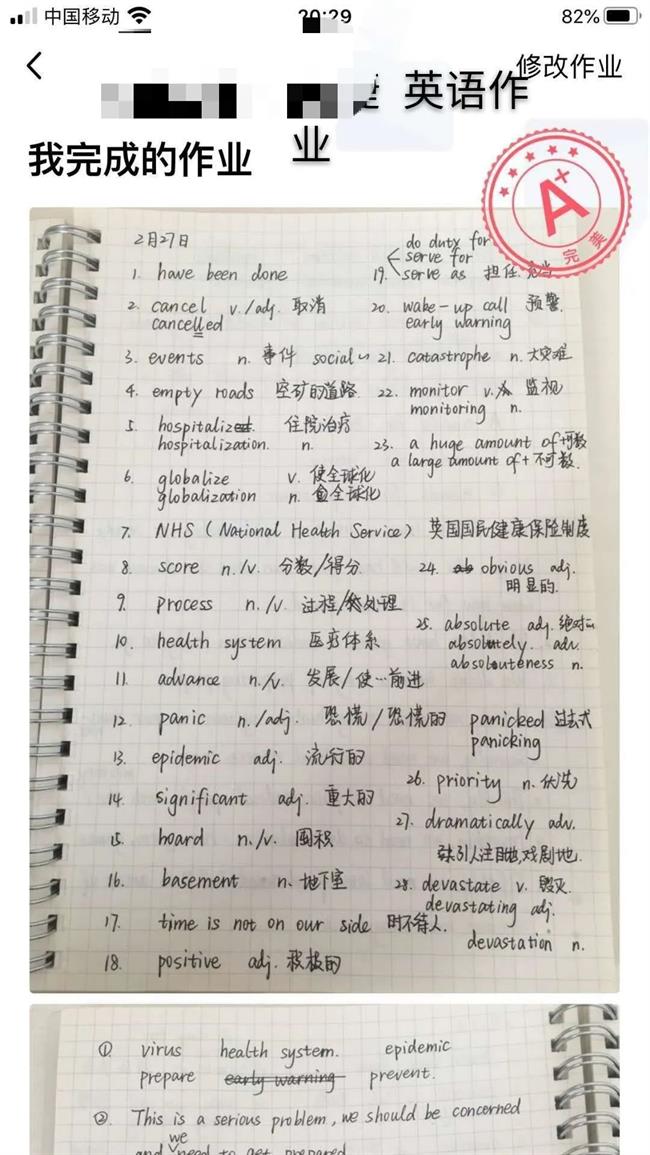 中国移动
20:29
82%
修改作业
英语作
业
我完成的作业
A+
完美
2月27日
1. have been done
2. cancel v./adj. 取消
cancelled
3. events n. 事件 social~
4. empty roads 空矿的道路
5. hospitalized. 住院治疗
hospitalization. n.
6. globalize v. 使全球化
globalization n. 全球化
7. NHS (National Health Service) 英国国民健康保险制度
8. score n./v. 分数/得分
9. process n./v. 过程/处理
10. health system 医疗体系
11. advance n./v. 发展/使…前进
12. panic n./adj. 恐慌/恐慌的 panicked 过去式
panicking
13. epidemic adj. 流行的
14. significant adj. 重大的
15. hoard n./v. 囤积
16. basement n. 地下室
17. time is not on our side 时不待人.
18. positive adj. 积极的
do duty for
serve for
19. serve as 担任.充当
20. wake-up call 预警.
early warning
21. catastrophe n. 大灾难
22. monitor v. 监视
monitoring n.
23. a huge amount of +可数
a large amount of + 不可数.
24. obvious adj.
明显的.
25. absolute adj. 绝对
absolutely. adv.
absolouteness n.
26. priority n. 优先
27. dramatically adv.
引人注目地,戏剧地.
28. devastate v. 毁灭.
devastating adj.
devastation n.
① virus health system. epidemic
prepare early warning prevent.
② This is a serious problem, we should be concerned
and we need to get prepared